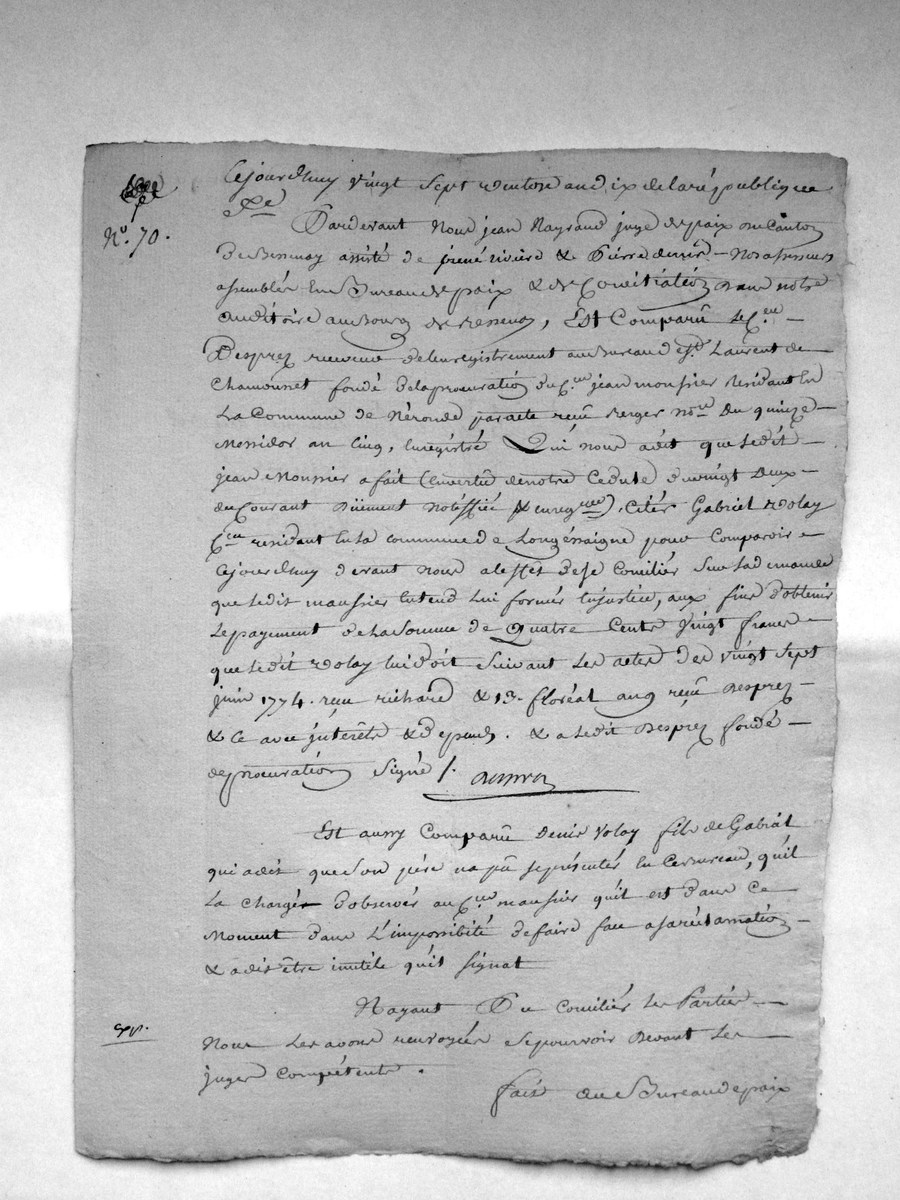 Cejourdhuy vingt sept ventose an dix de la république
N.º 70.
Pardevant Nous jean Raynaud juge de paix du Canton
De Bessenay assisté de rivière & Pierre Nos assesseurs
assemblés En Bureau de paix & de Conciliation dans notre
auditoire au Bourg de Bessenay, Est Comparû le C.en
Desprez receveur de lenregistrement au Bureau de St Laurent de
Chamousset fondé de la procuration du C.en jean moussier Residant En
La Commune de Néronde par acte reçu Verger no.re Du quinze
Messidor an cinq, Enregistré Qui nous a dit que ledit
jean Moussier a fait (en vertu de notre Cedule du vingt Deux
du Courant Duement Notiffiée & enreg.rée) Citer Gabriel Volay
C.en residant en la commune de Longessaigne pour Comparoir
Cejourdhuy devant nous a leffet de se Concilier Sur la demande
que ledit moussier Entend Lui former En justice, aux fins d'obtenir
Le payement De La Somme de Quatre Cents Vingt francs
que ledit Volay lui doit Suivant Les actes Des Vingt Sept
juin 1774. reçu richard & 13. floréal an 9 reçu Desprez
& Ce avec jnterêts & depends. & a Ledit Desprez fondé
de procuration Signé /.
Est aussy Comparû Denis Volay fils de Gabriel
qui a dit que Son père na pû se présenter En ce Bureau, qu'il
La Chargé D'observer au C.en moussier qu'il est dans Ce
Moment dans L'impossibilité de faire face a sa réclamation
& a dit être inutile qu'il signat
Nayant Pu Concilier Les Parties
Nous Les avons renvoyées se pourvoir Devant Les
juges Compétents.
fait au Bureau de paix